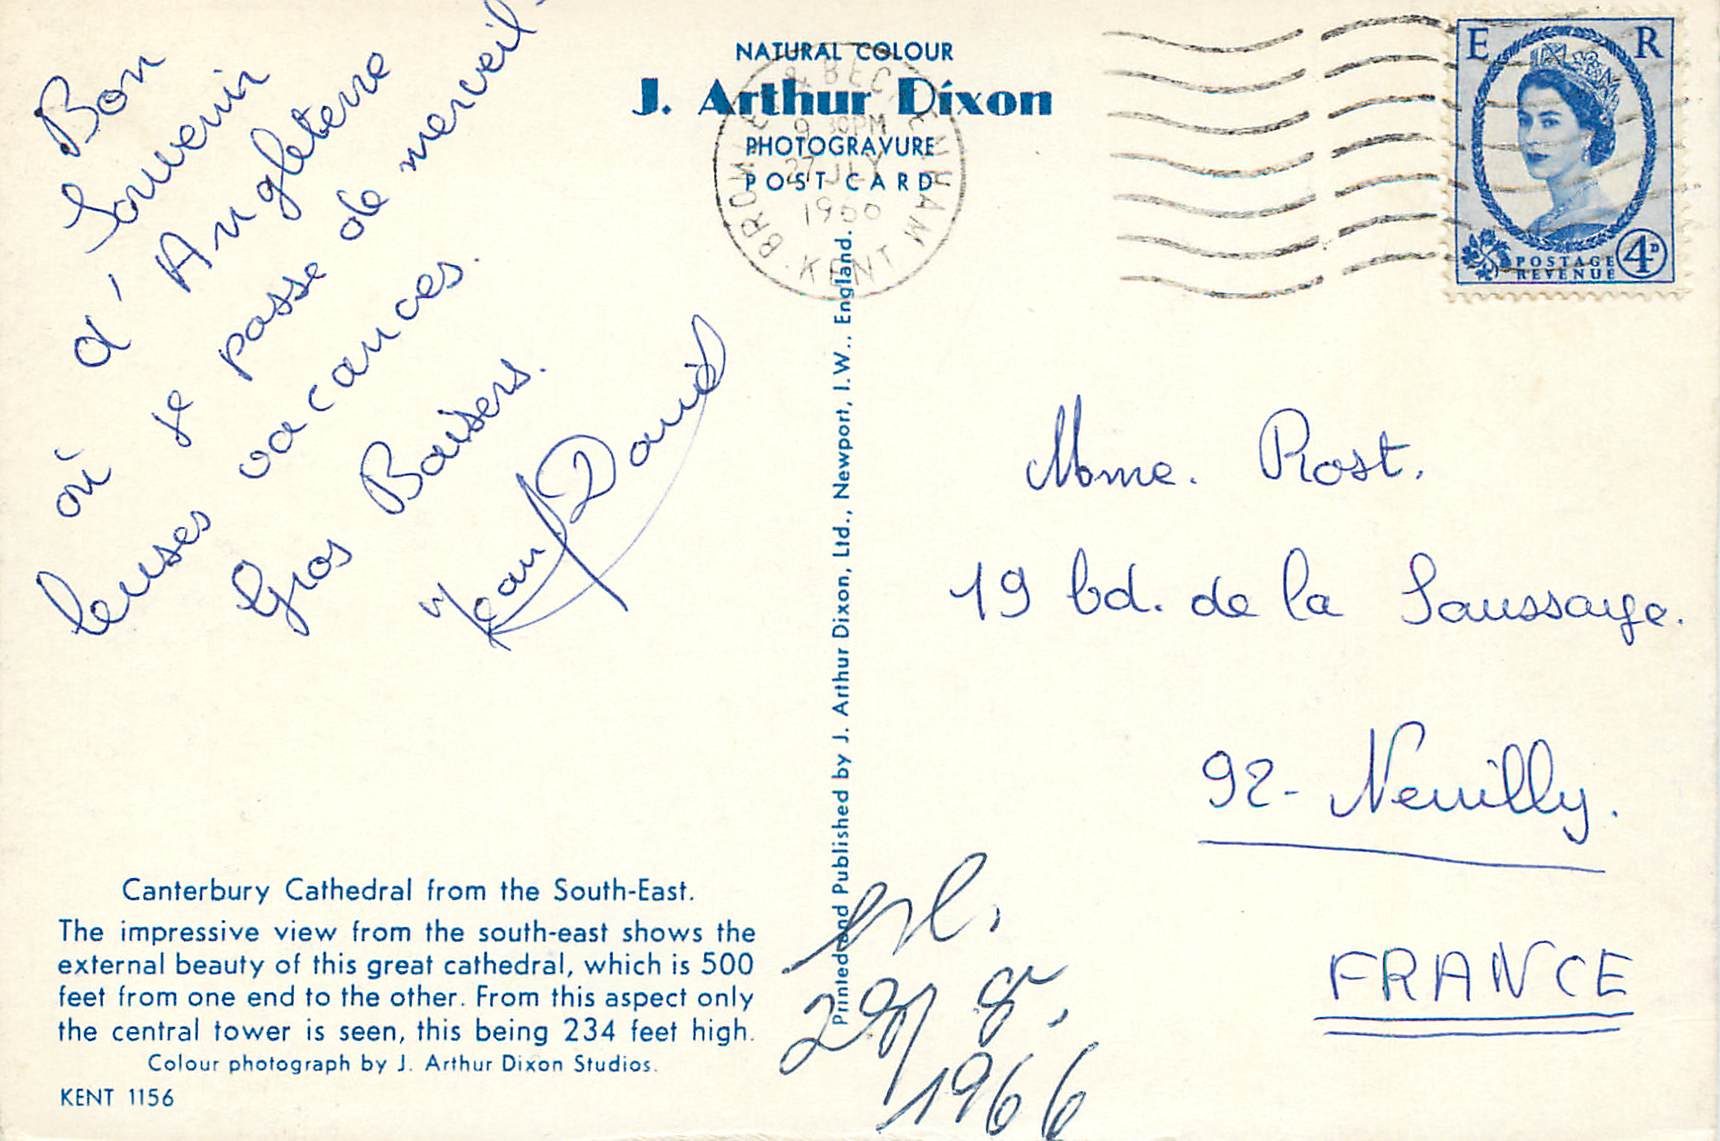 Bon
Souvenir
d'Angleterre
où je passe de merveil-
leuses vacances.
Gros Baisers.
Jean David
NATURAL COLOUR
J. Arthur Dixon
PHOTOGRAVURE
POST CARD
BROMLEY & BECKENHAM
9 30PM
27 JLY
1966
KENT
E R
POSTAGE
REVENUE
4D
Printed and Published by J. Arthur Dixon, Ltd., Newport, I.W., England.
Mme. Rost.
19 bd. de la Saussaye.
92- Neuilly.
FRANCE
1966
Canterbury Cathedral from the South-East.
The impressive view from the south-east shows the
external beauty of this great cathedral, which is 500
feet from one end to the other. From this aspect only
the central tower is seen, this being 234 feet high.
Colour photograph by J. Arthur Dixon Studios.
KENT 1156